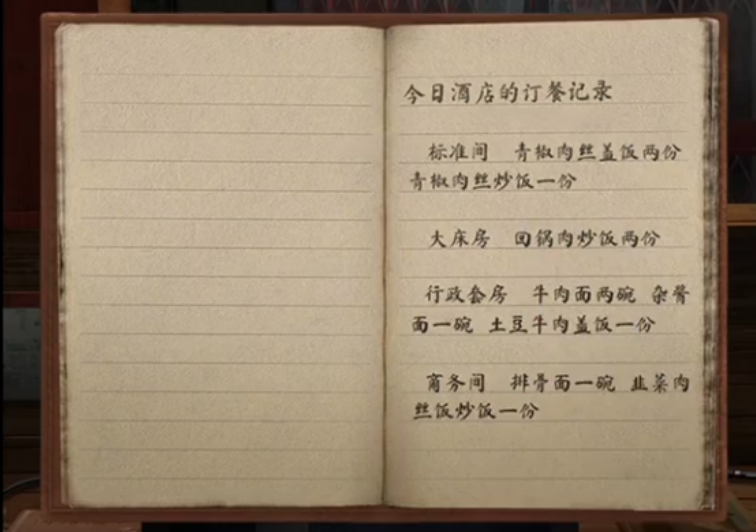 今日酒店的订餐记录
标准间 青椒肉丝盖饭两份
青椒肉丝炒饭一份
大床房 回锅肉炒饭两份
行政套房 牛肉面两碗 杂酱
面一碗 土豆牛肉盖饭一份
商务间 排骨面一碗 韭菜肉
丝饭炒饭一份